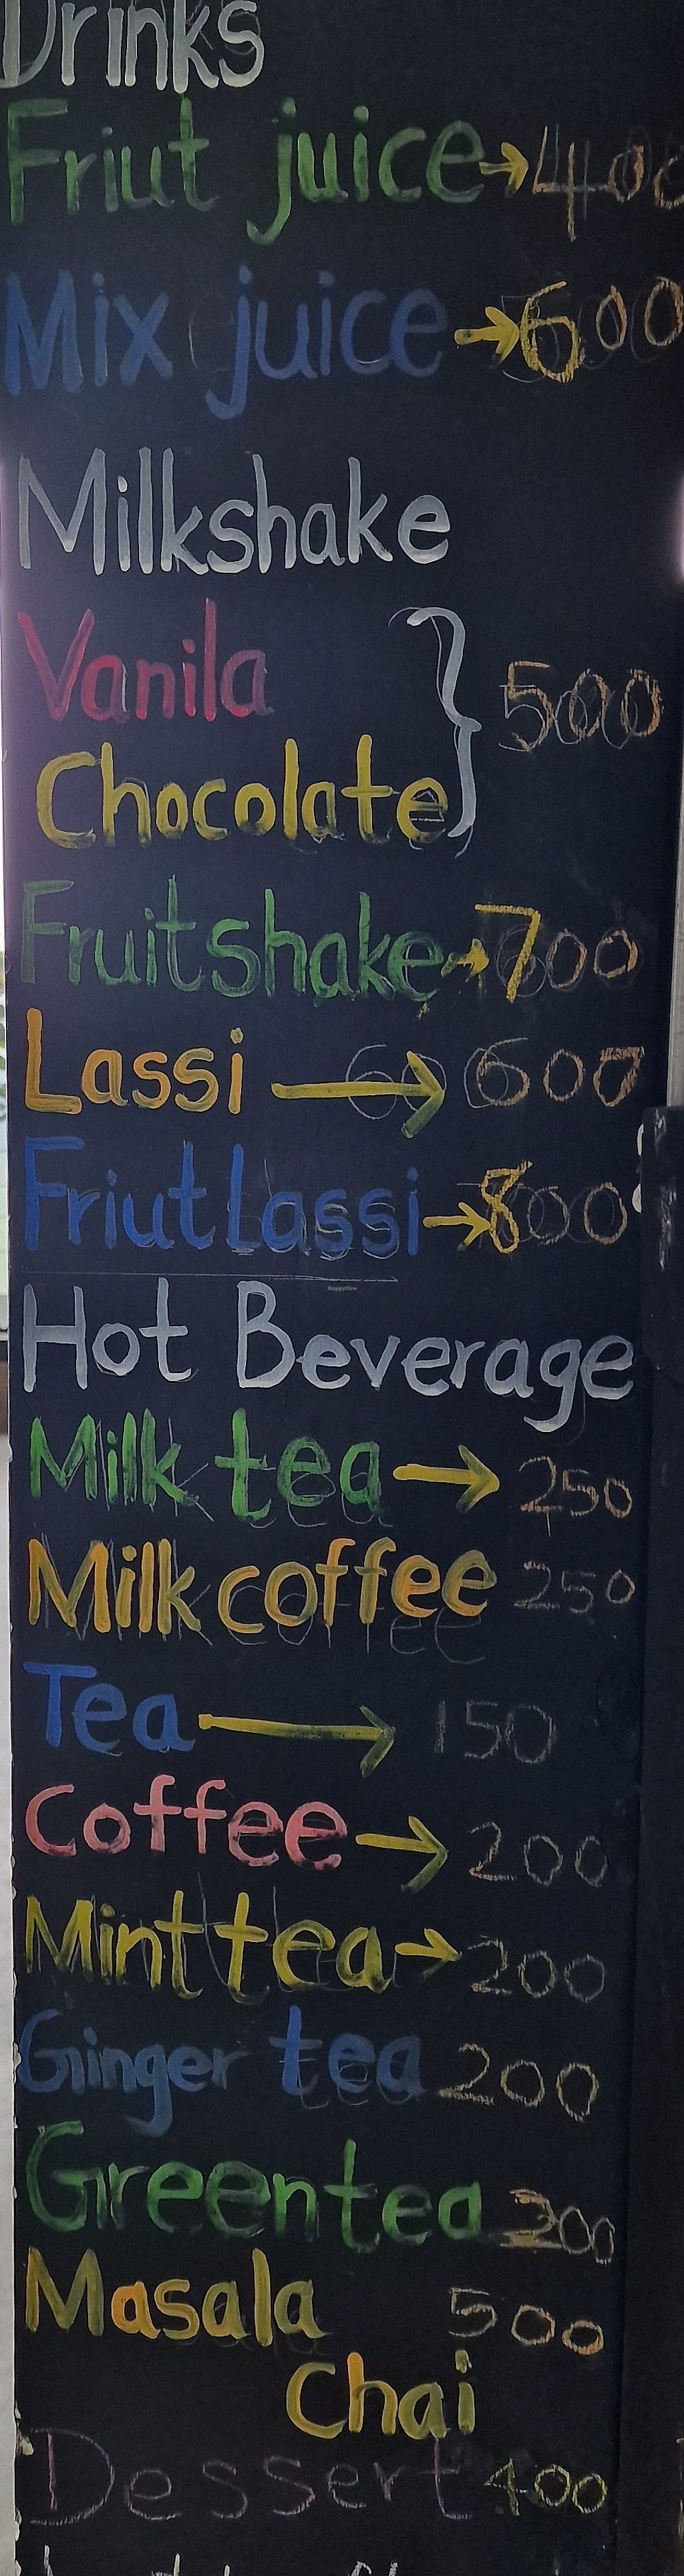 Drinks
Friut juice → 400
Mix juice → 600
Milkshake
Vanila
} 500
Chocolate
Fruitshake → 700
Lassi → 600
Friut Lassi → 800
HappyCow
Hot Beverage
Milk tea → 250
Milk coffee 250
Tea → 150
Coffee → 200
Mint tea → 200
Ginger tea 200
Green tea 200
Masala 500
Chai
Dessert 400